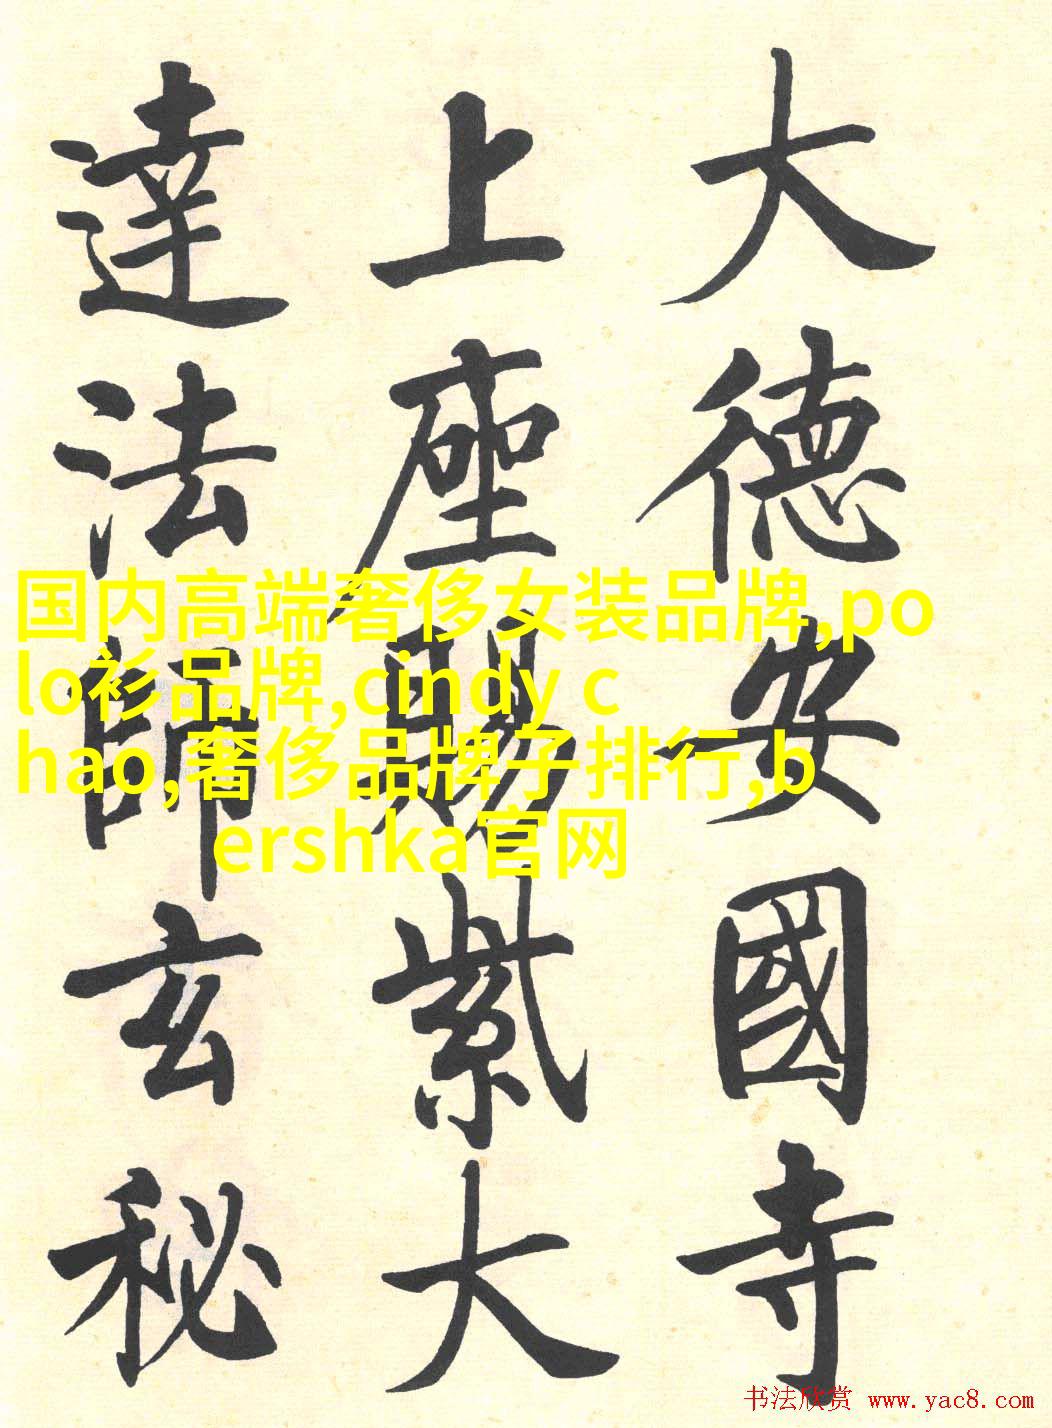 大德安國寺
上座賜紫大
達法師玄秘
国内高端奢侈女装品牌,po
lo衫品牌,cindy c
hao,奢侈品牌子排行,b
ershka官网
书法欣赏 www.yac8.com